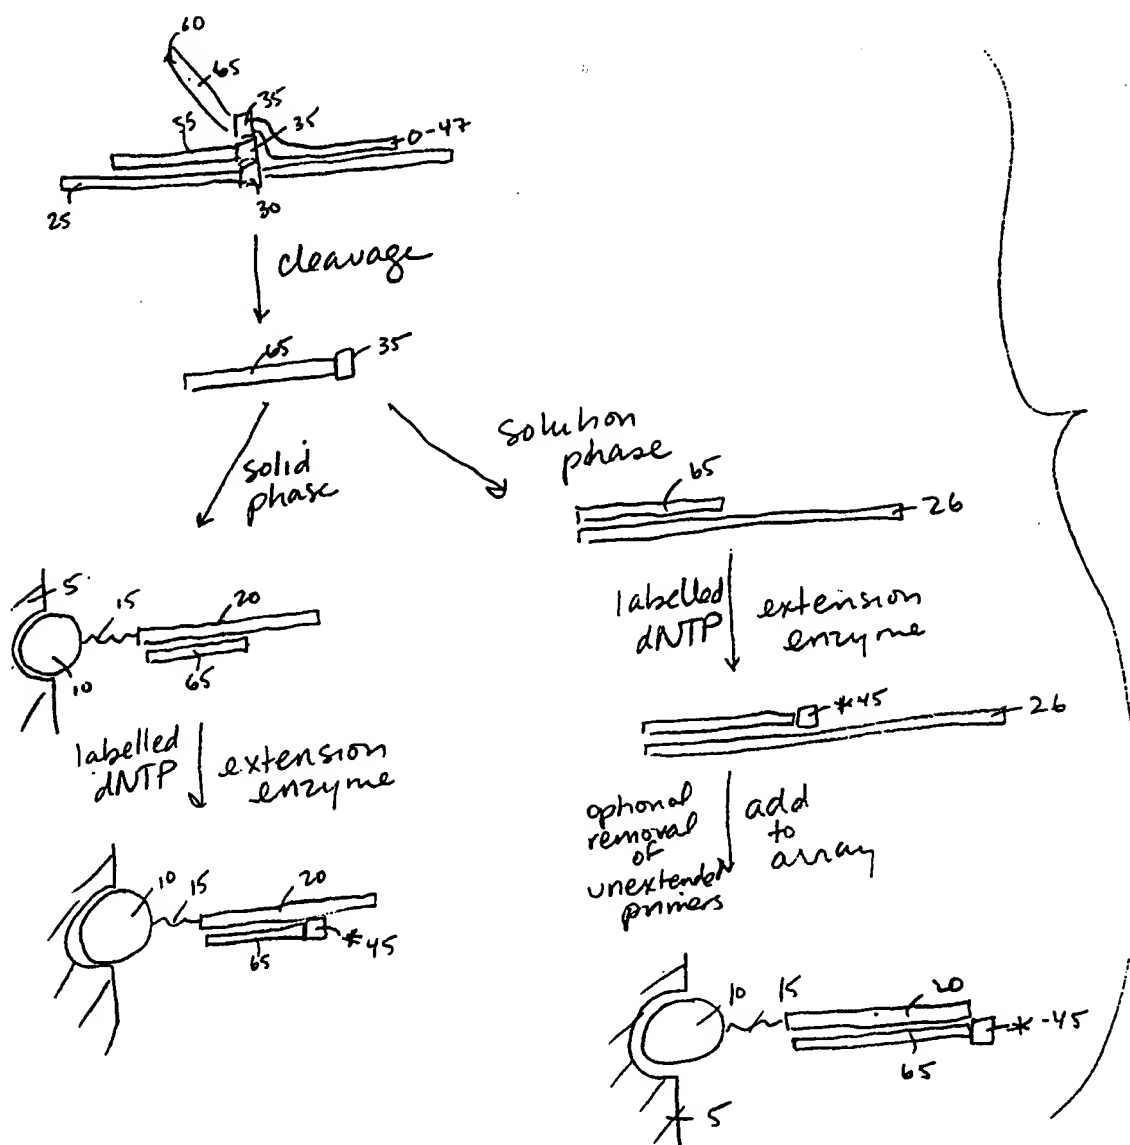 60
65
35
55
35
0-47
25
30
cleavage
65
35
solid
phase
solution
phase
65
26
labelled
dNTP
extension
enzyme
5
15
20
10
65
labelled
dNTP
extension
enzyme
*45
26
optional
removal
of
unextended
primers
add
to
array
10
15
20
65
*45
10
15
20
65
*-45
5